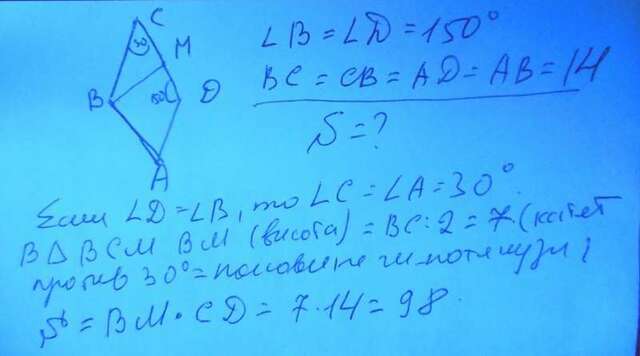 C
30
M
B
150
D
A
∠B = ∠D = 150°
BC = CB = AD = AB = 14
S = ?
Если ∠D = ∠B, то ∠C = ∠A = 30°.
В Δ BCM BM (висота) = BC : 2 = 7. (катет
против 30° = половине гипотенузи)
S = BM · CD = 7 · 14 = 98.